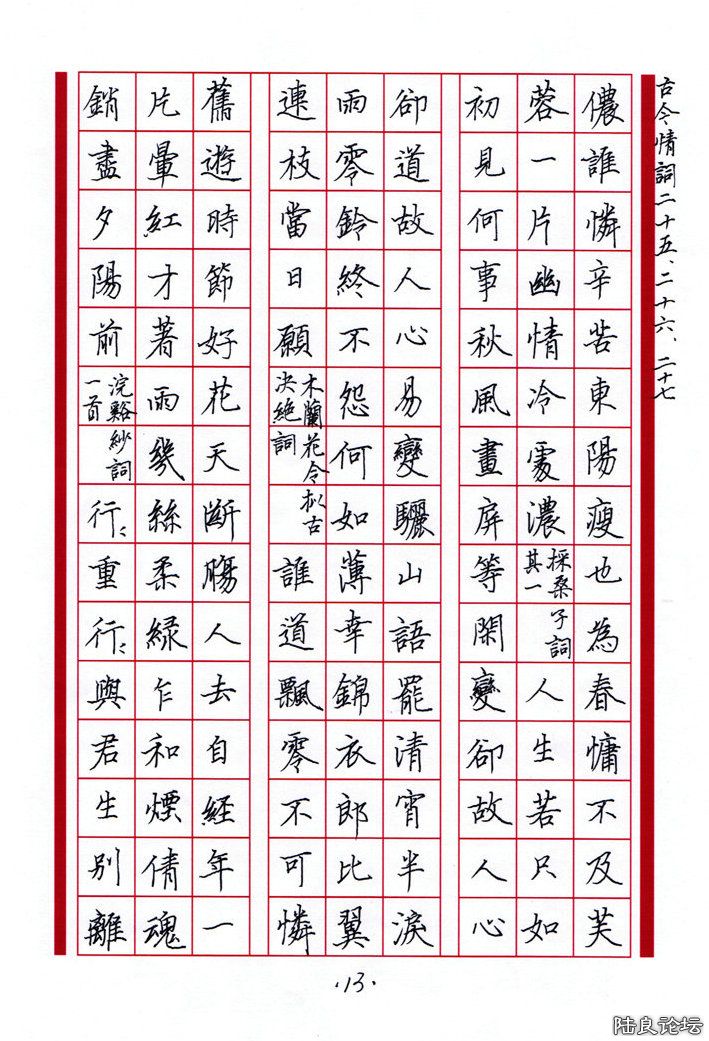 古今情詞二十五、二十六、二十七
儂誰憐辛苦東陽瘦也為春慵不及芙
蓉一片幽情冷處濃採桑子詞其一人生若只如
初見何事秋風畫屏等閑變卻故人心
卻道故人心易變驪山語罷清宵半淚
雨零鈴終不怨何如薄幸錦衣郎比翼
連枝當日願木蘭花令擬古决絕詞誰道飄零不可憐
舊遊時節好花天斷腸人去自經年一
片暈紅才著雨幾絲柔綠乍和煙倩魂
銷盡夕陽前浣谿紗詞一首行〻重行〻與君生別離
·13·
陆良论坛